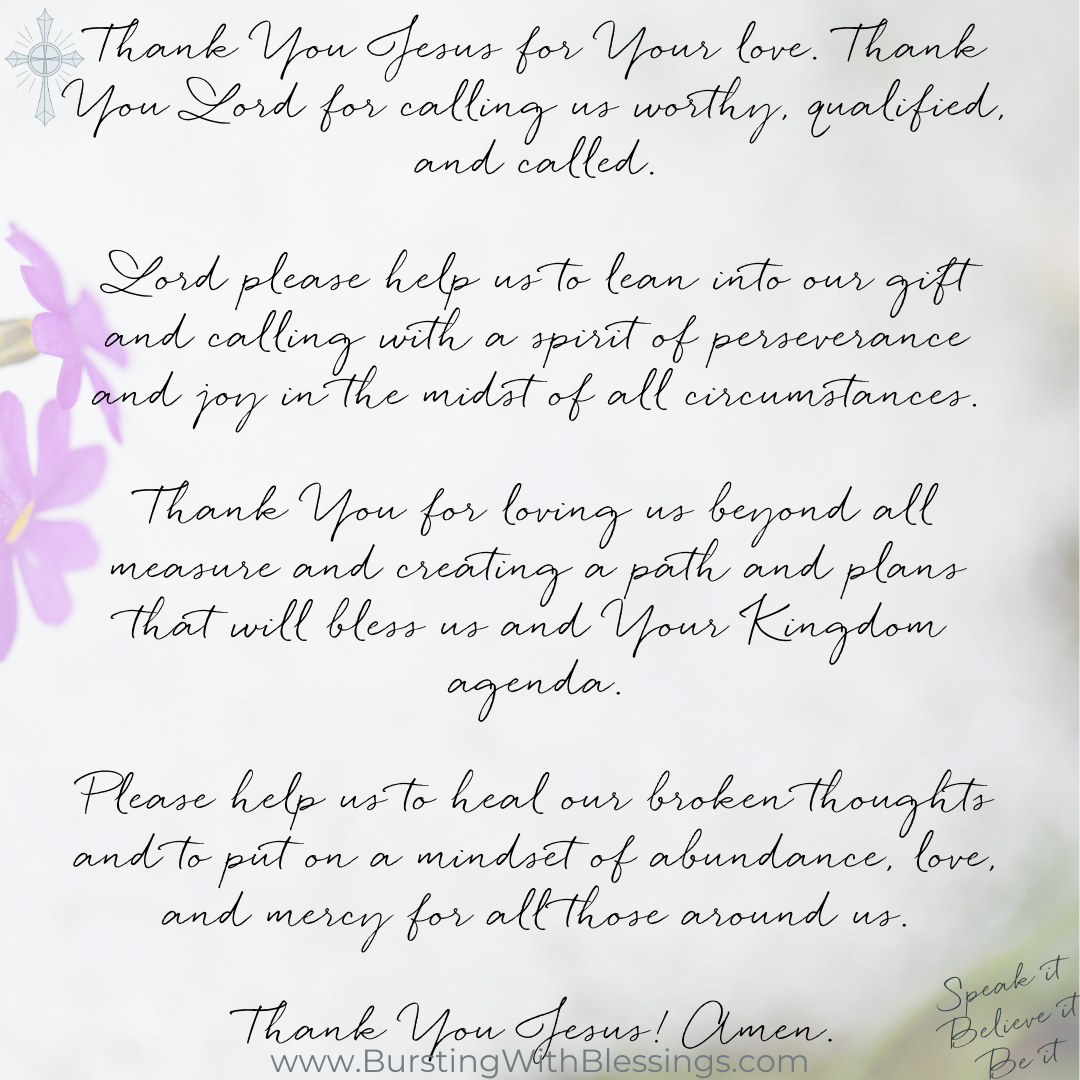 Thank You Jesus for Your love. Thank
You Lord for calling us worthy, qualified,
and called.
Lord please help us to lean into our gift
and calling with a spirit of perseverance
and joy in the midst of all circumstances.
Thank You for loving us beyond all
measure and creating a path and plans
that will bless us and Your Kingdom
agenda.
Please help us to heal our broken thoughts
and to put on a mindset of abundance, love,
and mercy for all those around us.
Thank You Jesus! Amen.
www.BurstingWithBlessings.com
Speak it
Believe it
Be it